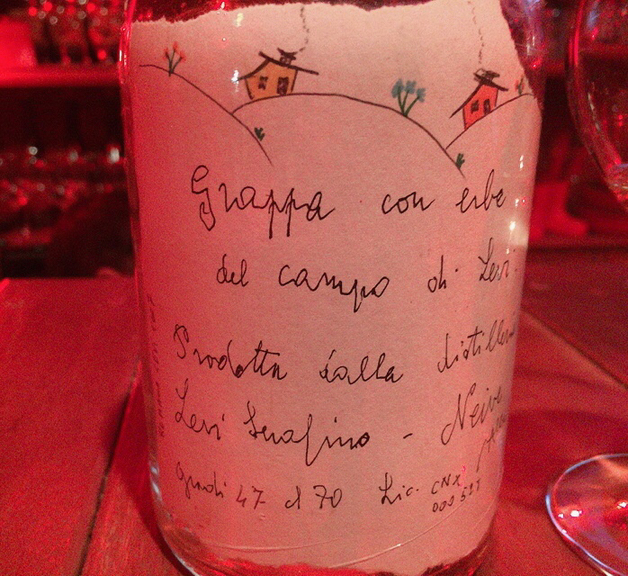 Grappa con erbe
del campo di Levi
Prodotta dalla distilleri
Levi Serafino - Neive
gradi 47 cl 70 Lic. CNX
000 521